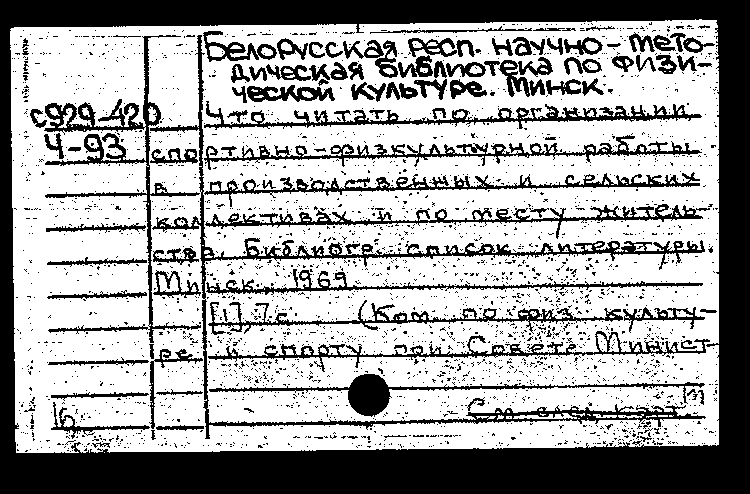 Белорусская респ. научно-мето-
дическая библиотека по физи-
ческой культуре. Минск.
с929-420 Что читать по организации
Ч-93 спортивно-физкультурной работы
в производственных и сельских
коллективах и по месту житель-
ства. Библиогр. список литературы.
Минск, 1969.
[1], 7 с. (Ком. по физ. культу-
ре и спорту при Совете Минист-
См. след. карт.
16